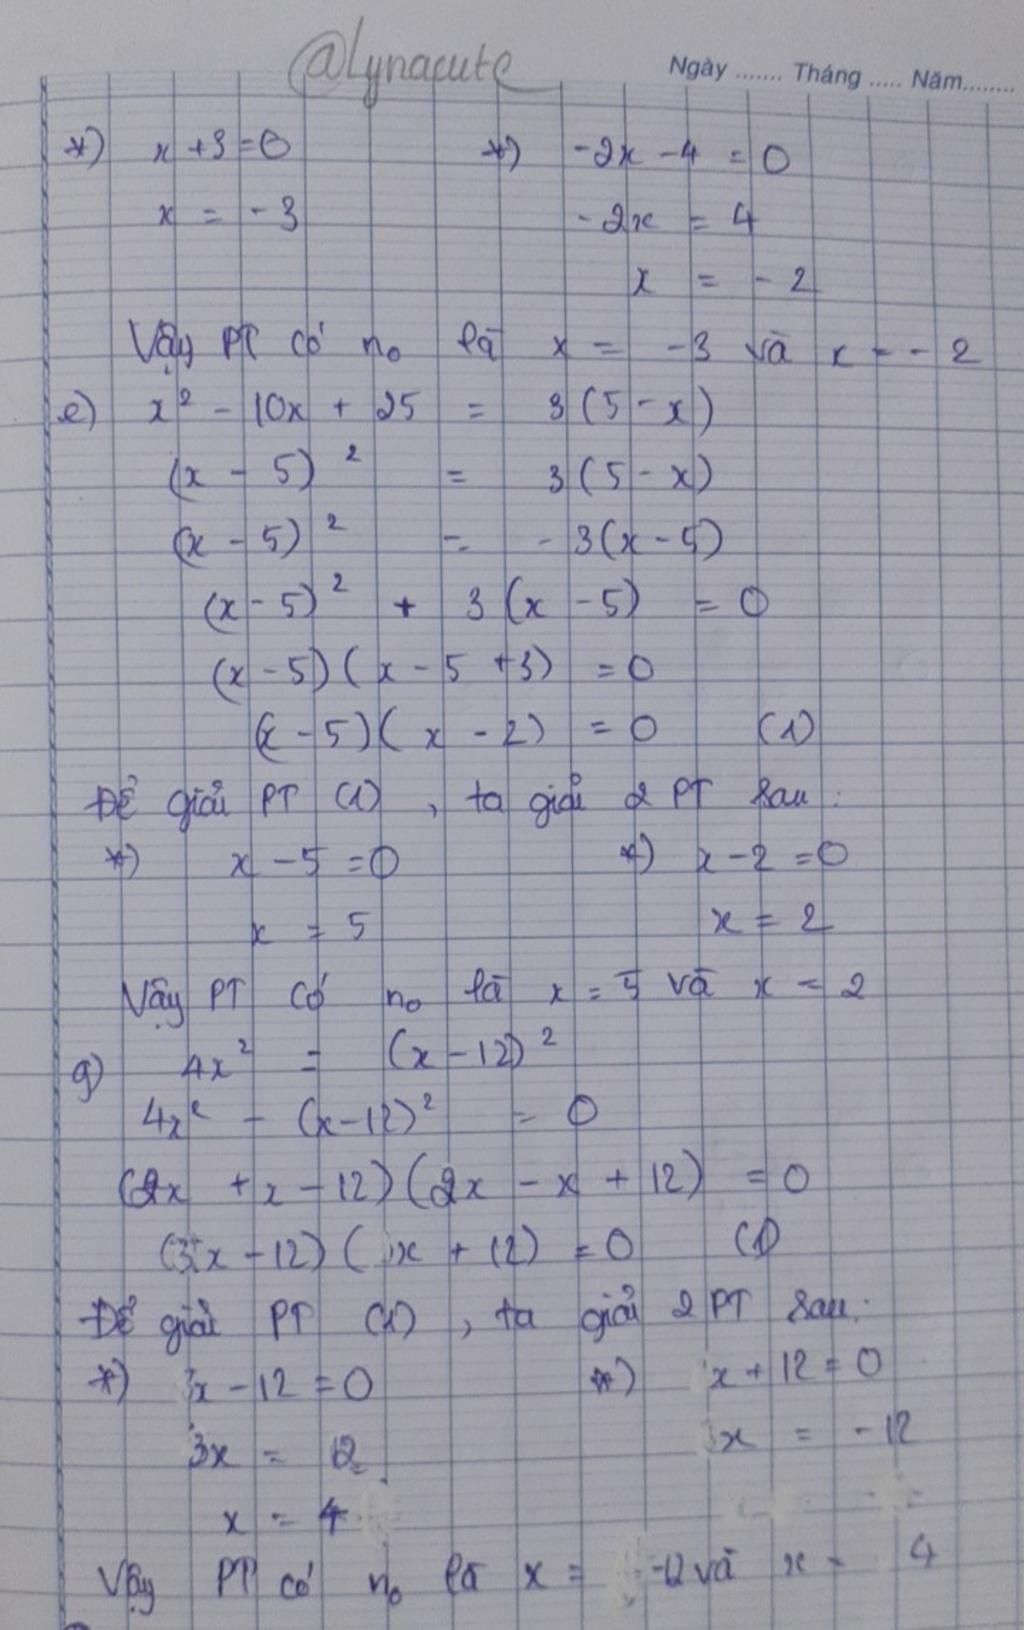 @Lynacute
Ngày ....... Tháng ..... Năm........
*) x + 3 = 0 *) -2x - 4 = 0
x = -3 -2x = 4
x = -2
Vậy PT có no là x = -3 và x = -2
e) x² - 10x + 25 = 3(5 - x)
(x - 5)² = 3(5 - x)
(x - 5)² = -3(x - 5)
(x - 5)² + 3(x - 5) = 0
(x - 5)(x - 5 + 3) = 0
(x - 5)(x - 2) = 0 (1)
Để giải PT (1), ta giải 2 PT sau:
*) x - 5 = 0 *) x - 2 = 0
x = 5 x = 2
Vậy PT có no là x = 5 và x = 2
g) 4x² = (x - 12)²
4x² - (x - 12)² = 0
(2x + x - 12)(2x - x + 12) = 0
(3x - 12)(x + 12) = 0 (1)
Để giải PT (1), ta giải 2 PT sau:
*) 3x - 12 = 0 *) x + 12 = 0
3x = 12 x = -12
x = 4
Vậy PT có no là x = -12 và x = 4